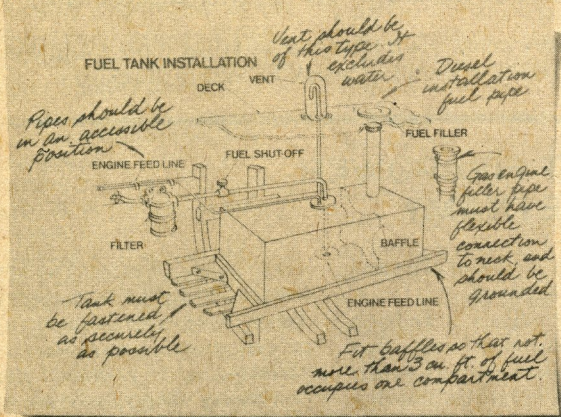 Vent should be
of this type. It
excludes
water
FUEL TANK INSTALLATION
VENT
DECK
Diesel
installation
fuel pipe
Pipes should be
in an accessible
position
ENGINE FEED LINE
FUEL SHUT-OFF
FUEL FILLER
Gas engine
filler pipe
must have
flexible
connection
to neck and
should be
grounded
FILTER
BAFFLE
ENGINE FEED LINE
Tank must
be fastened
as securely
as possible
Fit baffles so that not
more than 3 cu. ft. of fuel
occupies one compartment.